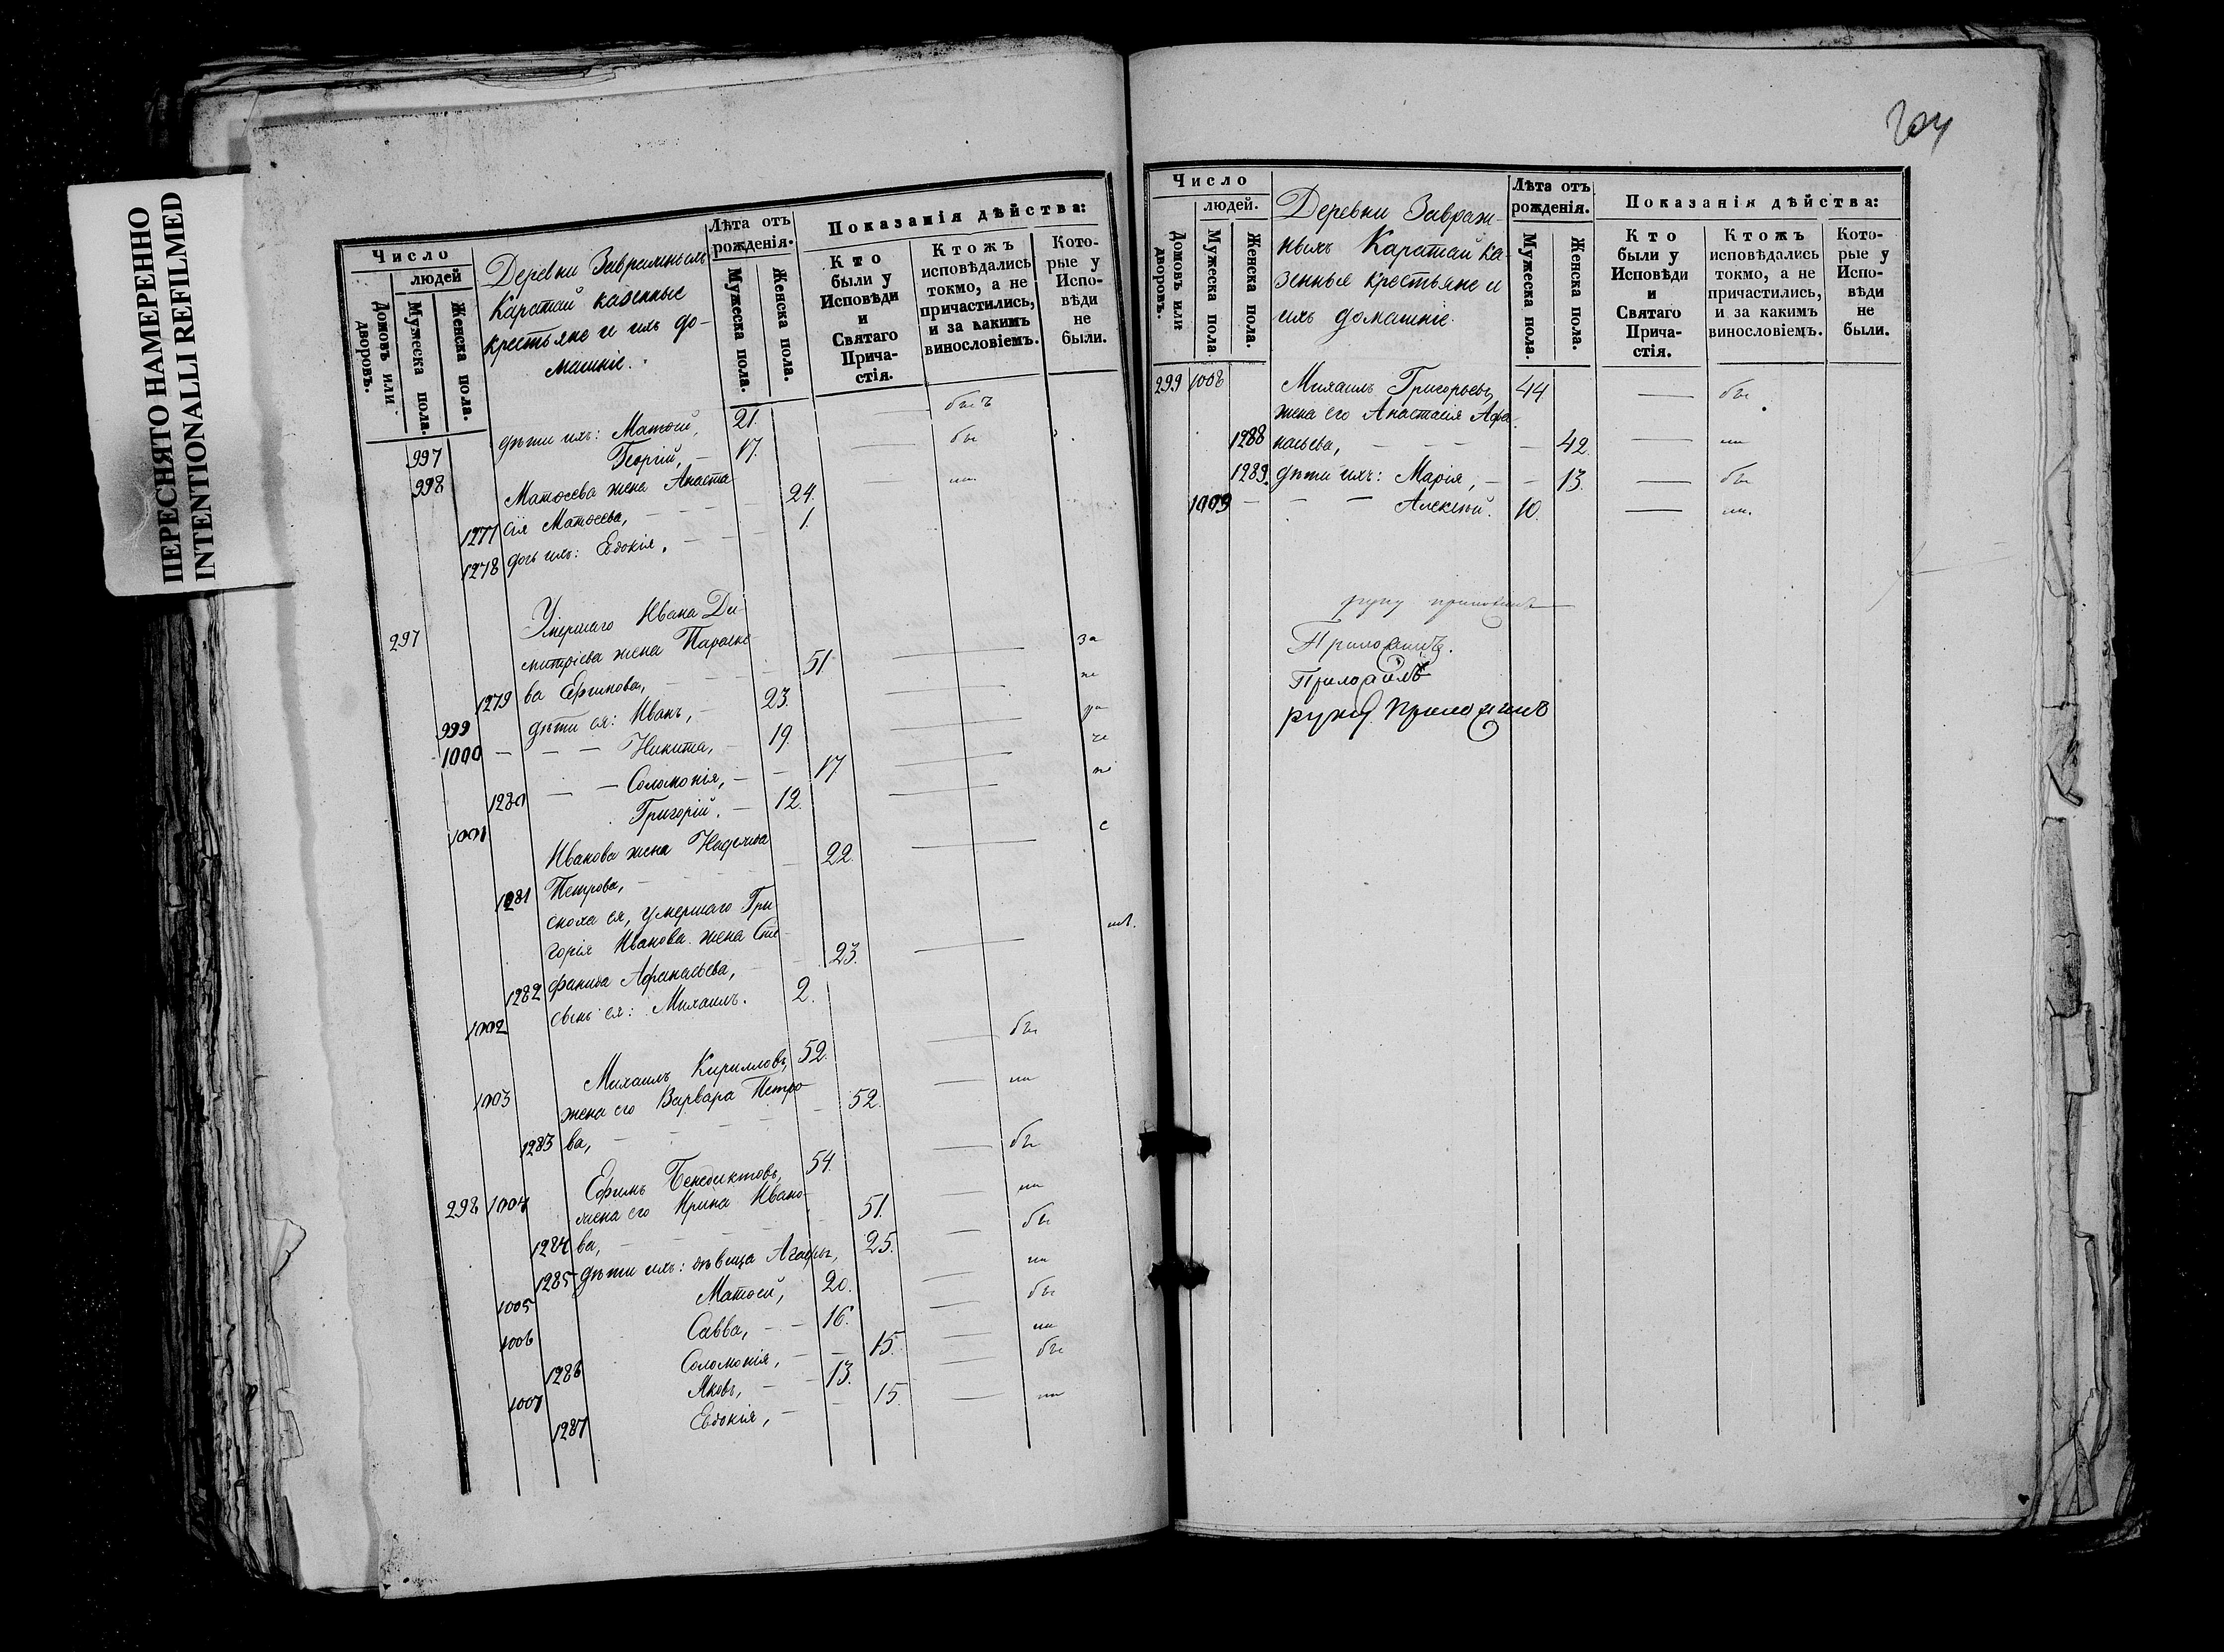 ПЕРЕСНЯТО НАМЕРЕННО
INTENTIONALLI REFILMED
Число
людей
Домовъ или дворовъ.
Мужеска пола.
Женска пола.
Деревни Завражныхъ
Каратай казенные
крестьяне и ихъ до-
машніе.
Лѣта отъ рожденія.
Мужеска пола.
Женска пола.
Показанія дѣйства:
Кто были у Исповѣди и Святаго Прича-стія.
Ктожъ исповѣдались токмо, а не причастились, и за какимъ винословіемъ.
Кото-рые у Испо-вѣди не были.
997 дѣти ихъ: Матѳей, 21. бытъ
998 Георгій, 17. бы
Матѳеева жена Анаста
1277 сія Матѳеева, 24. ли
1278 дочь ихъ: Евдокія. 1.
297 Умершаго Ивана Ди-
митріева жена Параске-
1279 ва Ефимова, 51 за
999 дѣти ея: Иванъ, 23. не
1000 Никита, 19.
1280 Соломонія, 17 че
1001 Григорій. 12. ні
Иванова жена Надежда
1281 Петрова, 22. е
сноха ея, умершаго Гри
горія Иванова жена Сте-
1282 фанида Афанасьева, 23. мъ.
1002 сынъ ея: Михаилъ. 2.
1003 Михаилъ Кирилловъ, 52. бы
жена его Варвара Петро-
1283 ва, 52. ли
298 1004 Ефимъ Бенедиктовъ, 54. бы
жена его Ирина Ивано-
1284 ва, 51. ли
1285 дѣти ихъ: дѣвица Агафья, 25. бы
1005 Матѳей, 20. ли
1006 Савва, 16. бы
1286 Соломонія, 15. ли
1007 Яковъ, 13. бы
1287 Евдокія, 15. ли
204
Число
людей.
Домовъ или дворовъ.
Мужеска пола.
Женска пола.
Деревни Завраж-
ныхъ Каратай ка-
зенные крестьяне и
ихъ домашніе.
Лѣта отъ рожденія.
Мужеска пола.
Женска пола.
Показанія дѣйства:
Кто были у Исповѣди и Святаго Прича-стія.
Ктожъ исповѣдались токмо, а не причастились, и за какимъ винословіемъ.
Кото-рые у Испо-вѣди не были.
299 1008 Михаилъ Григорьевъ, 44 бы
жена его Анастасія Афа-
1288 насьева, 42. ли
1289. дѣти ихъ: Марія, 13. бы
1009 Алексѣй. 10. ли.
руку приложилъ
Приложилъ.
Приложилъ
руку приложилъ